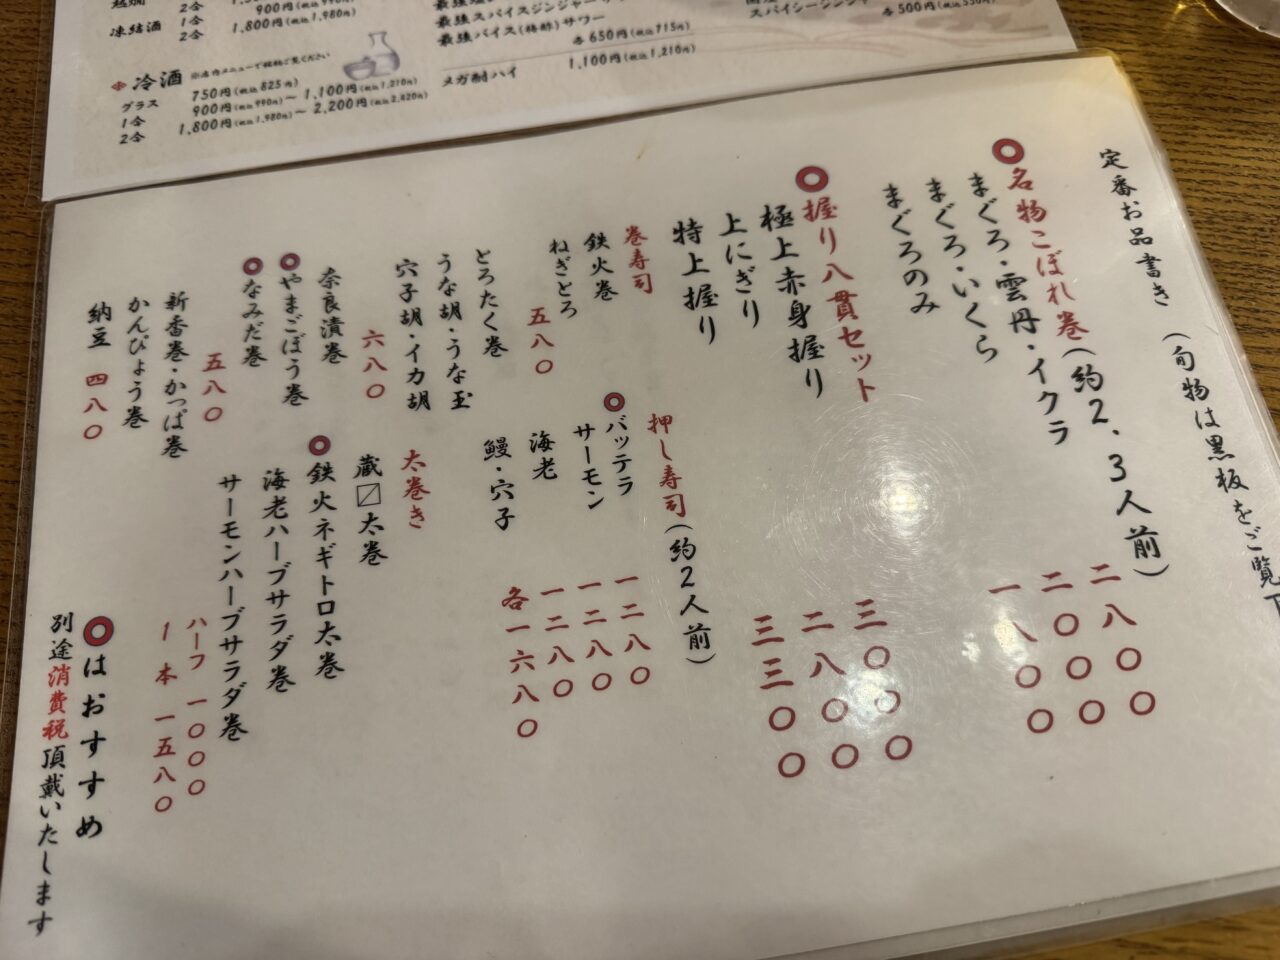 凍結酒
1合 900円(税込990円)
2合 1,800円(税込1,980円)
冷酒 ※店内メニューで種類ご覧ください
グラス 750円(税込825円)
1合 900円(税込990円)～1,100円(税込1,210円)
2合 1,800円(税込1,980円)～2,200円(税込2,420円)
最強スパイスジンジャー
最強バイス(梅酢)サワー
各650円(税込715円)
メガ酎ハイ 1,100円(税込1,210円)
スパイシージンジャー
各500円(税込550円)
定番お品書き (旬物は黒板をご覧下
◎名物こぼれ巻(約2、3人前)
まぐろ・雲丹・イクラ 二八〇〇
まぐろ・いくら 二〇〇〇
まぐろのみ 一八〇〇
◎握り八貫セット
極上赤身握り 三〇〇〇
上にぎり 二八〇〇
特上握り 三三〇〇
巻寿司
鉄火巻
ねぎとろ 五八〇
とろたく巻
うな胡・うな玉
穴子胡・イカ胡 六八〇
奈良漬巻
◎やまごぼう巻
◎なみだ巻 五八〇
新香巻・かっぱ巻
かんぴょう巻
納豆 四八〇
押し寿司(約2人前)
◎バッテラ 一二八〇
サーモン 一二八〇
海老 一二八〇
鰻・穴子 各一六八〇
太巻き
蔵〼太巻
◎鉄火ネギトロ太巻
海老ハーブサラダ巻
サーモンハーブサラダ巻
ハーフ 一〇〇〇
1本 一五八〇
◎はおすすめ
別途消費税頂戴いたします